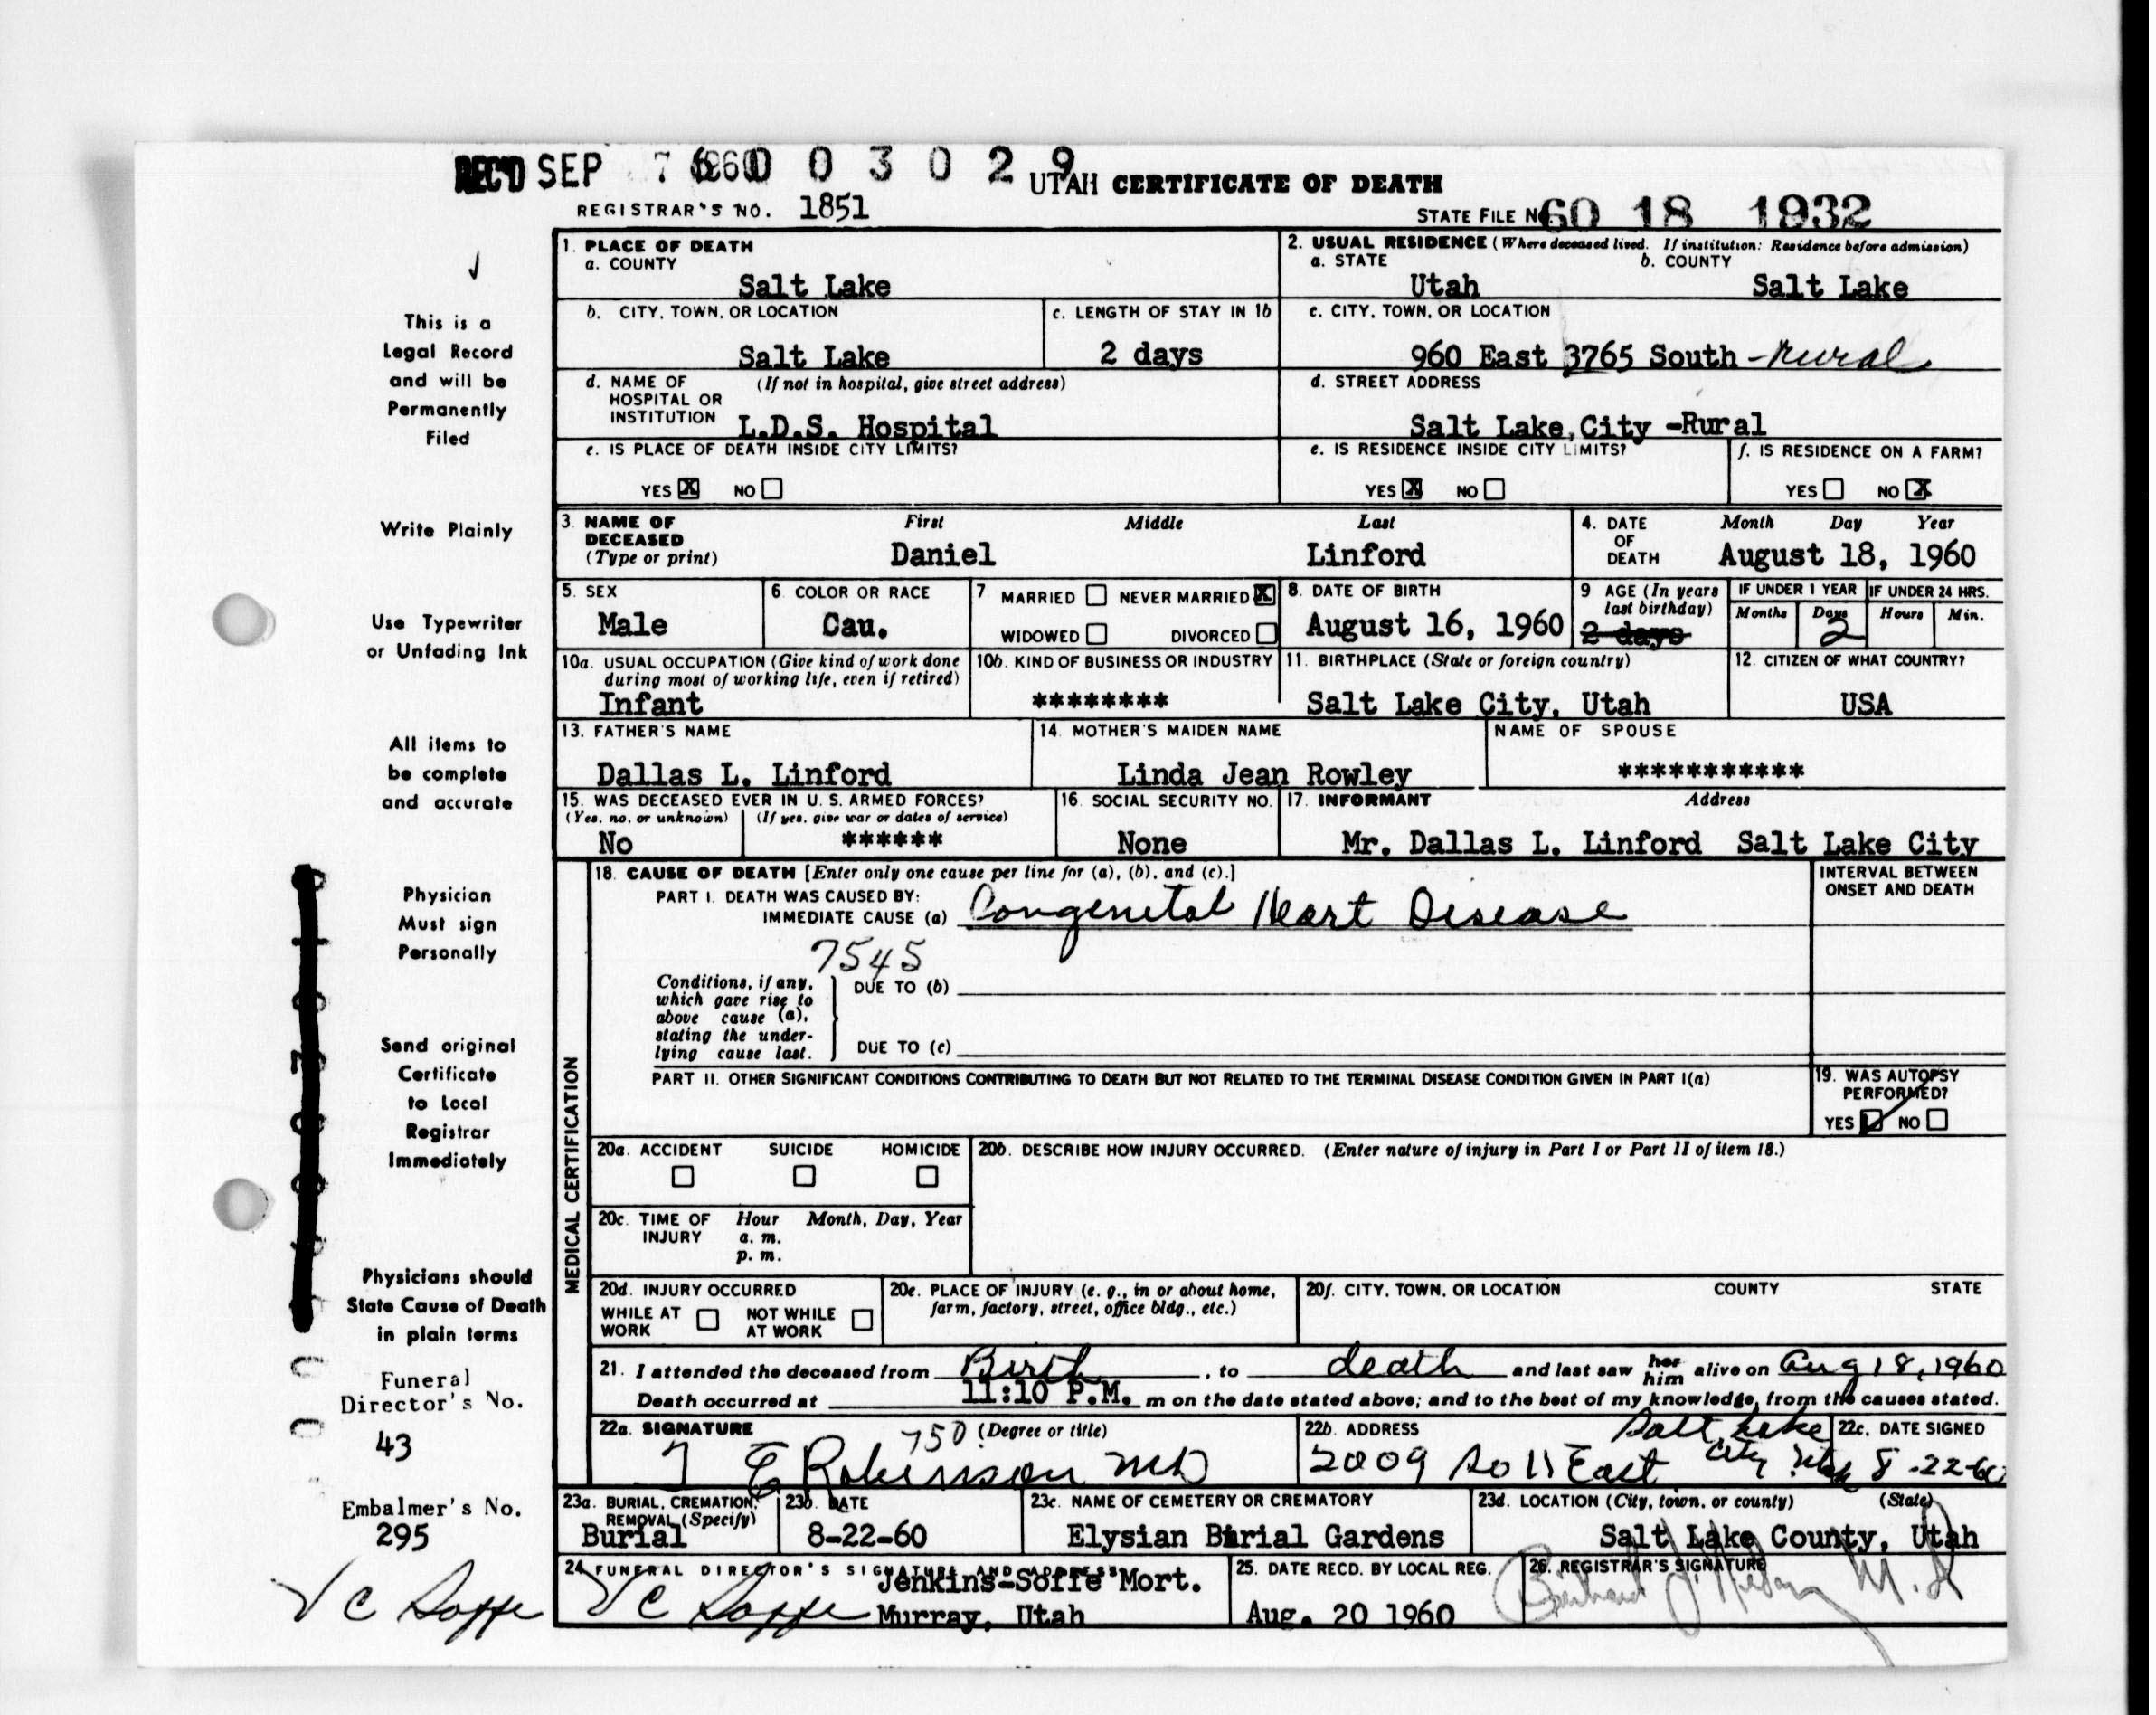 REC'D SEP 7 1960 6 0 0 3 0 2 9
UTAH CERTIFICATE OF DEATH
REGISTRAR'S NO. 1851
STATE FILE NO. 60 18 1932
This is a
Legal Record
and will be
Permanently
Filed
Write Plainly
Use Typewriter
or Unfading Ink
All items to
be complete
and accurate
Physician
Must sign
Personally
Send original
Certificate
to Local
Registrar
Immediately
Physicians should
State Cause of Death
in plain terms
Funeral
Director's No.
43
Embalmer's No.
295
V C Soffe
1. PLACE OF DEATH
a. COUNTY
Salt Lake
2. USUAL RESIDENCE (Where deceased lived. If institution: Residence before admission)
a. STATE b. COUNTY
Utah Salt Lake
b. CITY, TOWN, OR LOCATION
Salt Lake
c. LENGTH OF STAY IN 1b
2 days
c. CITY, TOWN, OR LOCATION
960 East 3765 South -rural
d. NAME OF (If not in hospital, give street address)
HOSPITAL OR
INSTITUTION L.D.S. Hospital
d. STREET ADDRESS
Salt Lake City -Rural
e. IS PLACE OF DEATH INSIDE CITY LIMITS?
YES X NO
e. IS RESIDENCE INSIDE CITY LIMITS?
YES X NO
f. IS RESIDENCE ON A FARM?
YES NO X
3. NAME OF DECEASED (Type or print)
First Middle Last
Daniel Linford
4. DATE OF DEATH
Month Day Year
August 18, 1960
5. SEX
Male
6. COLOR OR RACE
Cau.
7 MARRIED NEVER MARRIED X
WIDOWED DIVORCED
8. DATE OF BIRTH
August 16, 1960
9 AGE (In years last birthday)
2 days
IF UNDER 1 YEAR IF UNDER 24 HRS.
Months Days Hours Min.
2
10a. USUAL OCCUPATION (Give kind of work done
during most of working life, even if retired)
Infant
10b. KIND OF BUSINESS OR INDUSTRY
********
11. BIRTHPLACE (State or foreign country)
Salt Lake City, Utah
12. CITIZEN OF WHAT COUNTRY?
USA
13. FATHER'S NAME
Dallas L. Linford
14. MOTHER'S MAIDEN NAME
Linda Jean Rowley
NAME OF SPOUSE
***********
15. WAS DECEASED EVER IN U. S. ARMED FORCES?
(Yes, no, or unknown) (If yes, give war or dates of service)
No ******
16. SOCIAL SECURITY NO.
None
17. INFORMANT Address
Mr. Dallas L. Linford Salt Lake City
MEDICAL CERTIFICATION
18. CAUSE OF DEATH [Enter only one cause per line for (a), (b), and (c).]
PART I. DEATH WAS CAUSED BY:
IMMEDIATE CAUSE (a) Congenital Heart Disease
INTERVAL BETWEEN
ONSET AND DEATH
7545
Conditions, if any,
which gave rise to
above cause (a),
stating the under-
lying cause last.
DUE TO (b)
DUE TO (c)
PART II. OTHER SIGNIFICANT CONDITIONS CONTRIBUTING TO DEATH BUT NOT RELATED TO THE TERMINAL DISEASE CONDITION GIVEN IN PART I(a)
19. WAS AUTOPSY
PERFORMED?
YES NO
20a. ACCIDENT SUICIDE HOMICIDE
20b. DESCRIBE HOW INJURY OCCURRED. (Enter nature of injury in Part I or Part II of item 18.)
20c. TIME OF INJURY
Hour Month, Day, Year
a. m.
p. m.
20d. INJURY OCCURRED
WHILE AT WORK NOT WHILE AT WORK
20e. PLACE OF INJURY (e. g., in or about home,
farm, factory, street, office bldg., etc.)
20f. CITY, TOWN, OR LOCATION COUNTY STATE
21. I attended the deceased from Birth, to death and last saw her him alive on Aug 18, 1960
Death occurred at 11:10 P.M. m on the date stated above; and to the best of my knowledge, from the causes stated.
22a. SIGNATURE 750 (Degree or title)
E Robinson MD
22b. ADDRESS
2009 So 11 East Salt Lake City Utah
22c. DATE SIGNED
8-22-60
23a. BURIAL, CREMATION,
REMOVAL (Specify)
Burial
23b. DATE
8-22-60
23c. NAME OF CEMETERY OR CREMATORY
Elysian Burial Gardens
23d. LOCATION (City, town, or county) (State)
Salt Lake County, Utah
24 FUNERAL DIRECTOR'S SIGNATURE AND ADDRESS
V C Soffe Jenkins-Soffe Mort.
Murray, Utah
25. DATE RECD. BY LOCAL REG.
Aug. 20 1960
26. REGISTRAR'S SIGNATURE
M.D